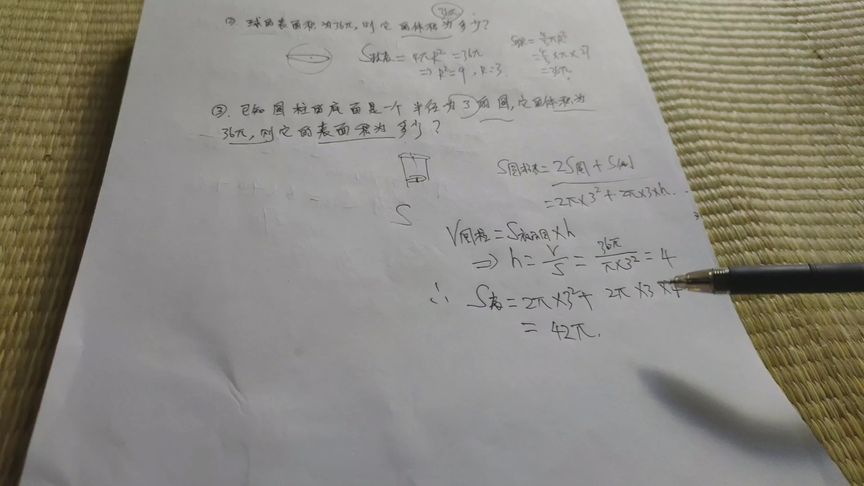 36π
②. 球的表面积为36π,则它的体积为多少?
S球表 = 4πR² = 36π
=> R²=9 , R=3
= 4/3 × π × 27
= 36π
③. 已知圆柱的底面是一个半径为3的圆,它的体积为
36π,则它的表面积为多少?
S圆柱表 = 2S圆 + S侧
= 2π×3² + 2π×3×h.
S
V圆柱 = S底面圆×h
=> h = V/S = 36π/π×3² = 4
∴ S表 = 2π×3² + 2π×3×4
= 42π.